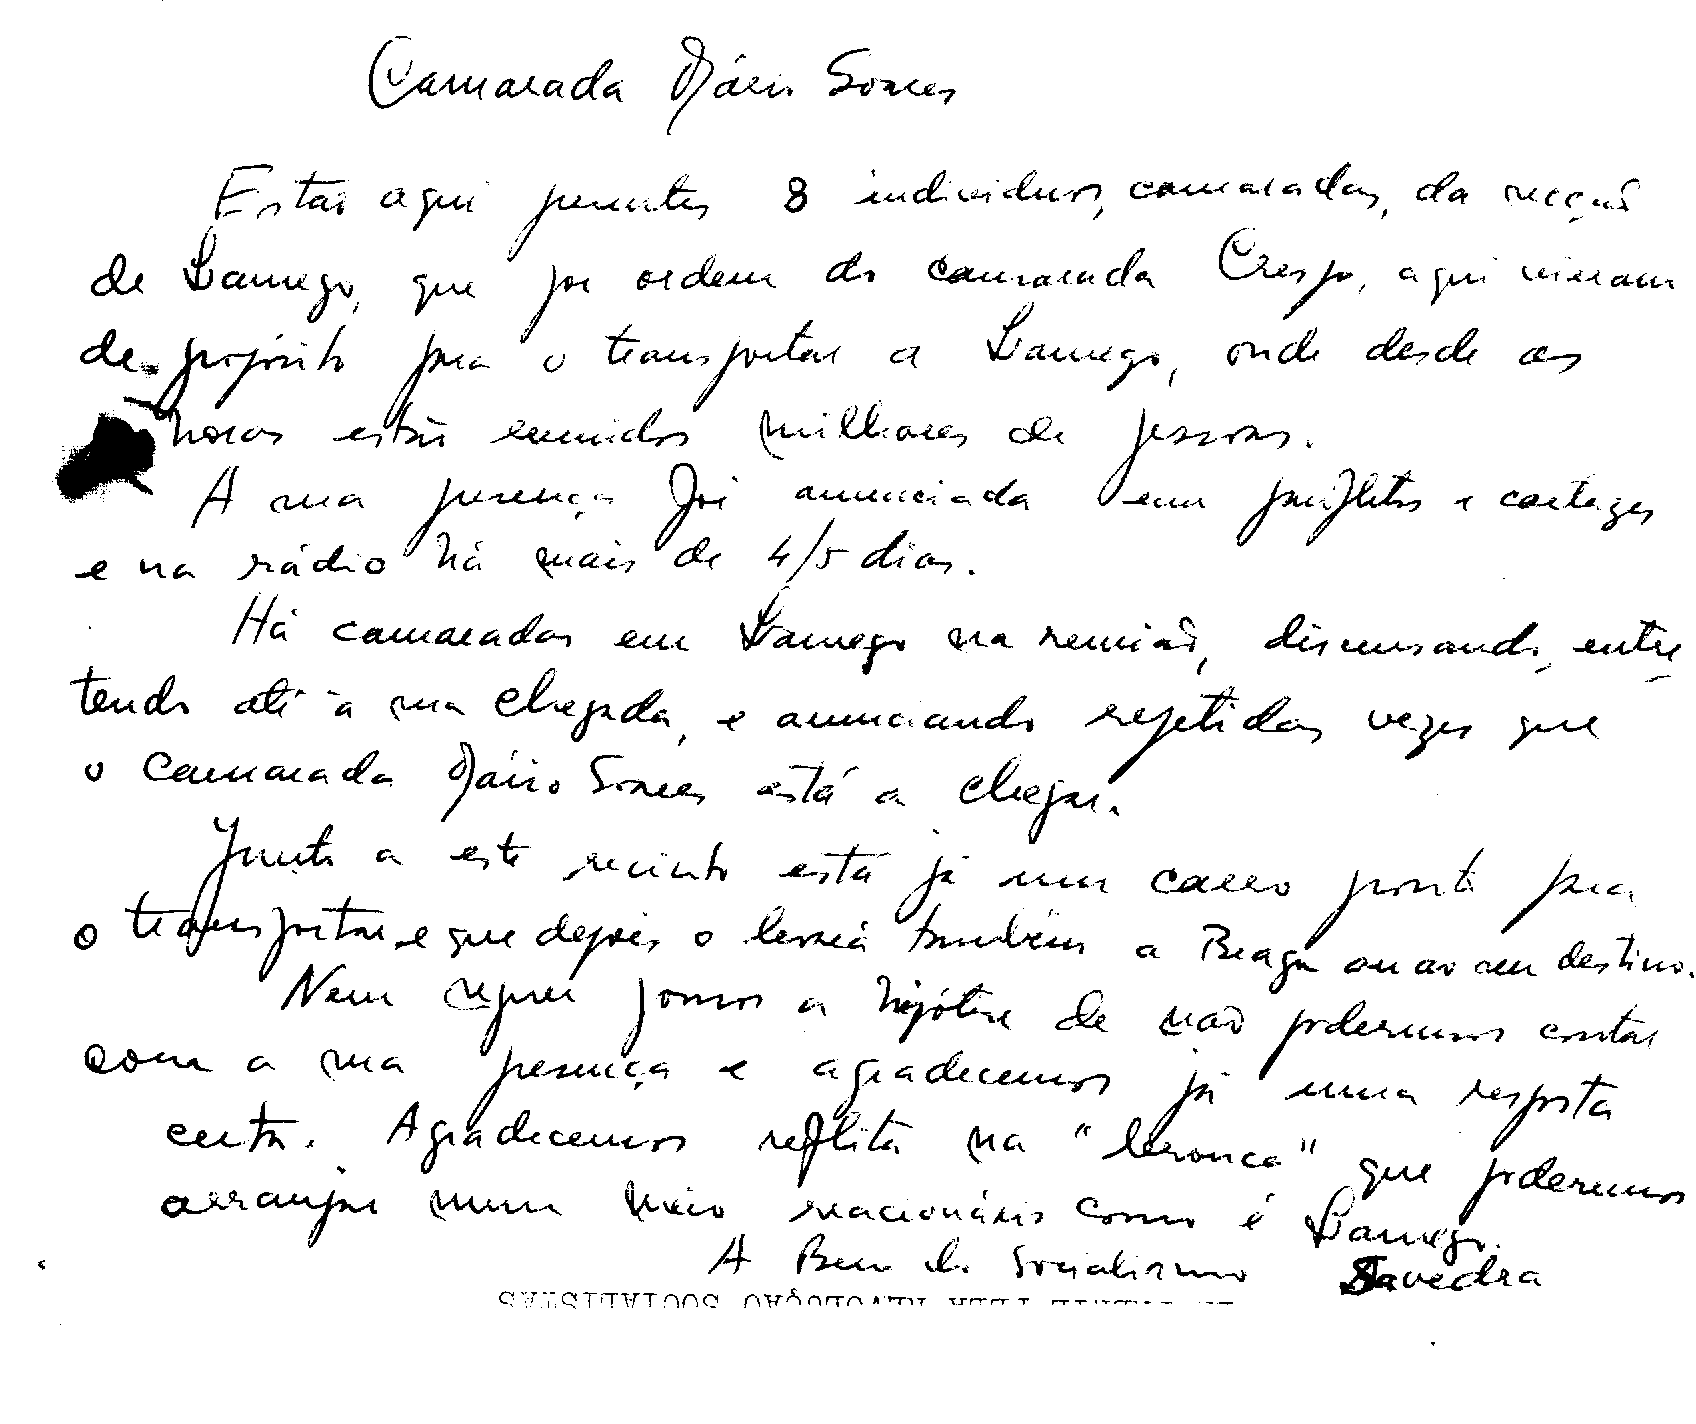 Camarada Mário Soares
Estão aqui presentes 8 individuos, camaradas, da secção
de Lamego, que por ordem do camarada Crespo, aqui vieram
de propósito para o transportar a Lamego, onde desde as
horas estão reunidos milhares de pessoas.
A sua presença foi anunciada em panfletos e cartazes
e na rádio há mais de 4/5 dias.
Há camaradas em Lamego na reunião, discursando, entre
tendo até à sua chegada, e anunciando repetidas vezes que
o camarada Mário Soares está a chegar.
Junto a este recinto está já um carro pronto para
o transportar e que depois o levará também a Braga ou ao seu destino.
Nem sequer pomos a hipótese de não podermos contar
com a sua presença e agradecemos já uma resposta
certa. Agradecemos reflita na "bronca" que poderemos
arranjar num meio reacionário como é Lamego.
A Bem do Socialismo Savedra
SOCIALISTAS